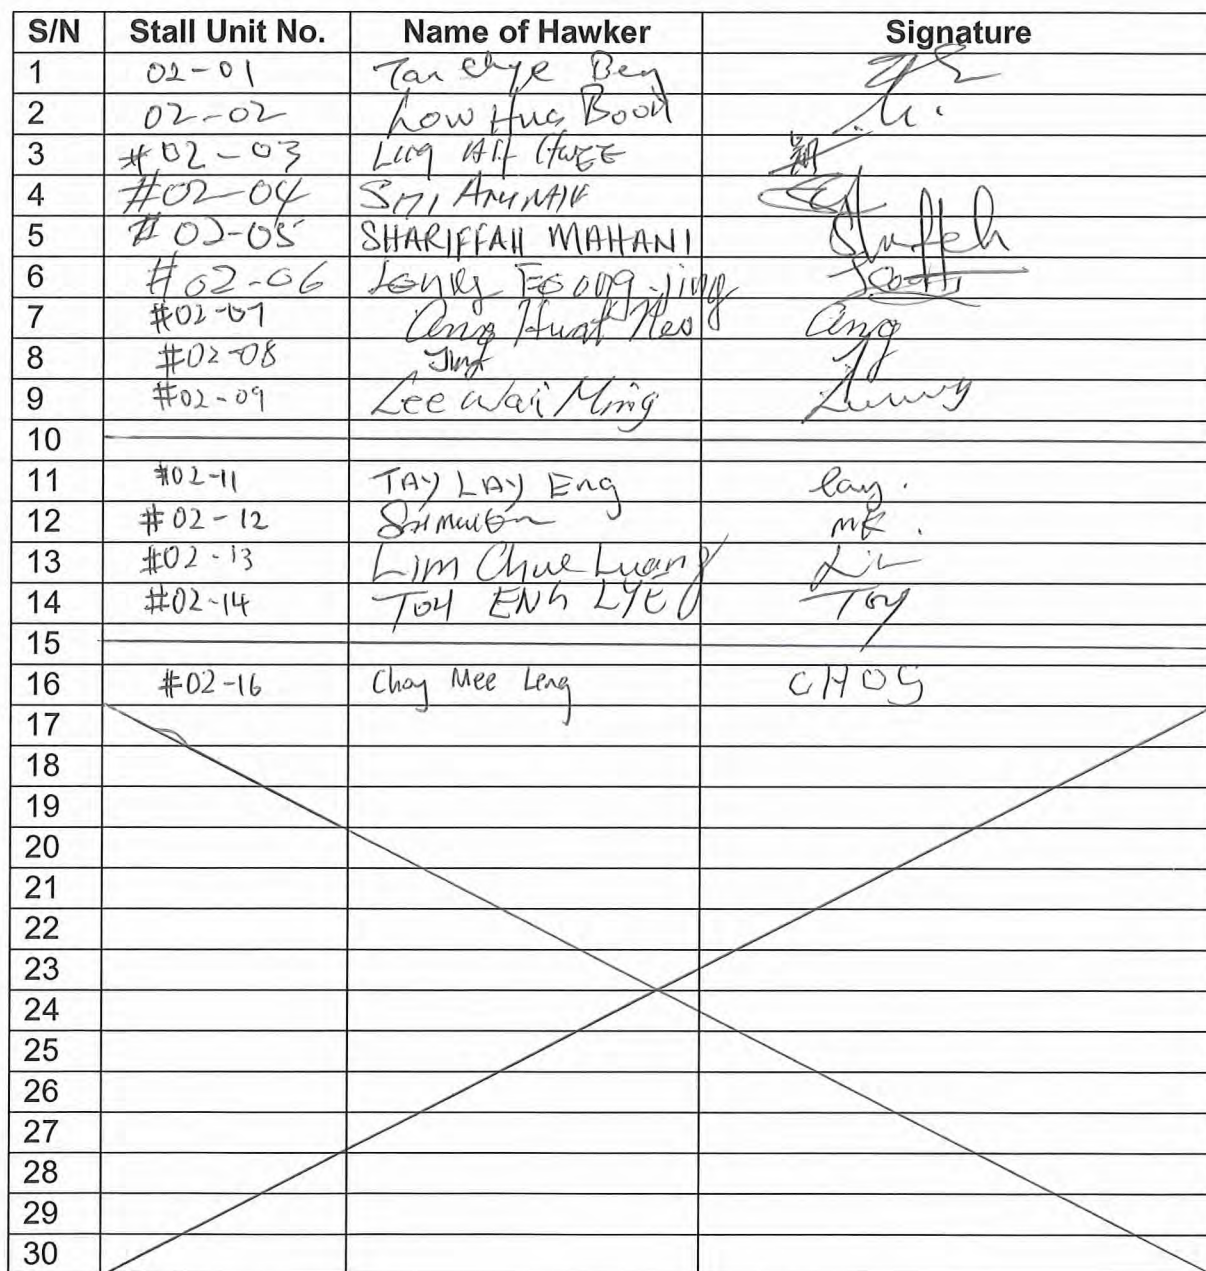 S/N Stall Unit No. Name of Hawker Signature
1 02-01 Tan Chye Beng
2 02-02 Low Hua Boon
3 #02-03 Ling AH HWEE
4 #02-04
5 #02-05 SHARIFFAH MAHANI
6 #02-06
7 #02-07 Ang Huat Neo Ang
8 #02-08
9 #02-09 Lee Wai Ming
10
11 #02-11 TAY LAY Eng Lay.
12 #02-12 mk.
13 #02-13 Lim Chue Luang Lim
14 #02-14 TOH ENG LYE Toy
15
16 #02-16 Choy Mee Leng CHOY
17
18
19
20
21
22
23
24
25
26
27
28
29
30